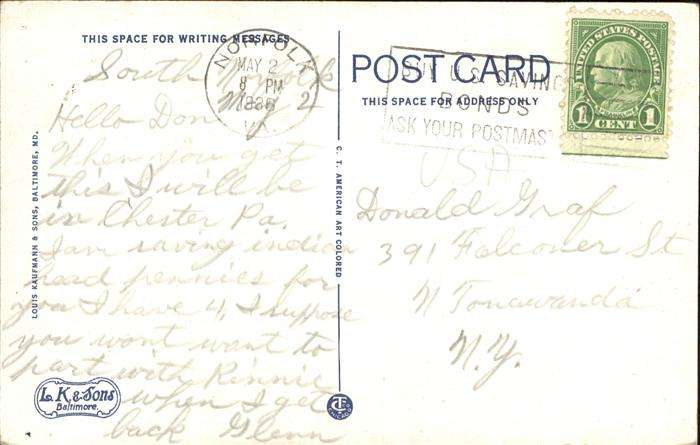 THIS SPACE FOR WRITING MESSAGES
POST CARD
THIS SPACE FOR ADDRESS ONLY
NORFOLK
MAY 2
8 PM
VA.
BUY U.S. SAVINGS
BONDS
ASK YOUR POSTMAS
UNITED STATES POSTAGE
1 CENT 1
South Norfolk
May 2
Hello Don
When you get
this I will be
in Chester Pa.
I am saving indian
head pennies for
you I have 4, I suppose
you wont want to
part with Rinnie
when I get
back Glenn
USA
Donald Graf
391 Falconer St
N Tonawanda
N.Y.
LOUIS KAUFMANN & SONS, BALTIMORE, MD.
C. T. AMERICAN ART COLORED
L. K. & Sons
Baltimore.